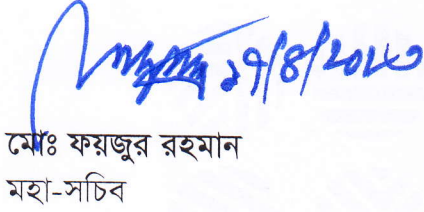 ১৭/৪/২০২৩
মোঃ ফয়জুর রহমান
মহা-সচিব